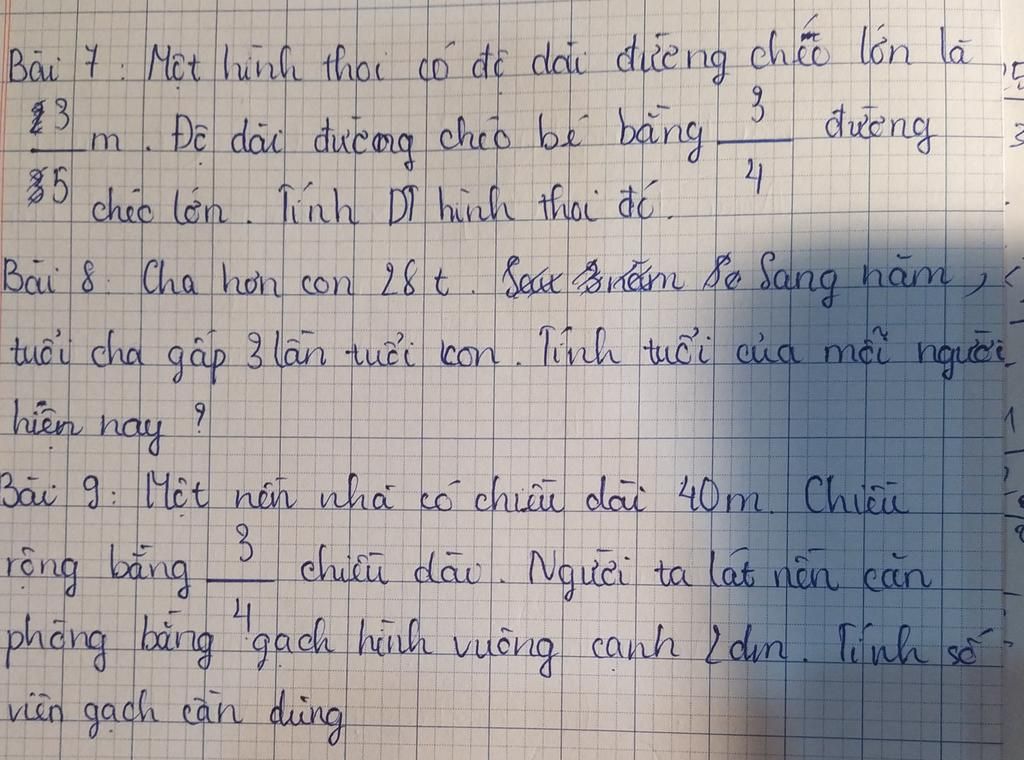 Bài 7: Một hình thoi có độ dài đường chéo lớn là
3/5 m. Độ dài đường chéo bé bằng 3/4 đường
chéo lớn. Tính DT hình thoi đó.
Bài 8: Cha hơn con 28 t. Sang năm,
tuổi cha gấp 3 lần tuổi con. Tính tuổi của mỗi người
hiện nay?
Bài 9: Một nền nhà có chiều dài 40m. Chiều
rộng bằng 3/4 chiều dài. Người ta lát nền căn
phòng bằng gạch hình vuông cạnh 2dm. Tính số
viên gạch cần dùng